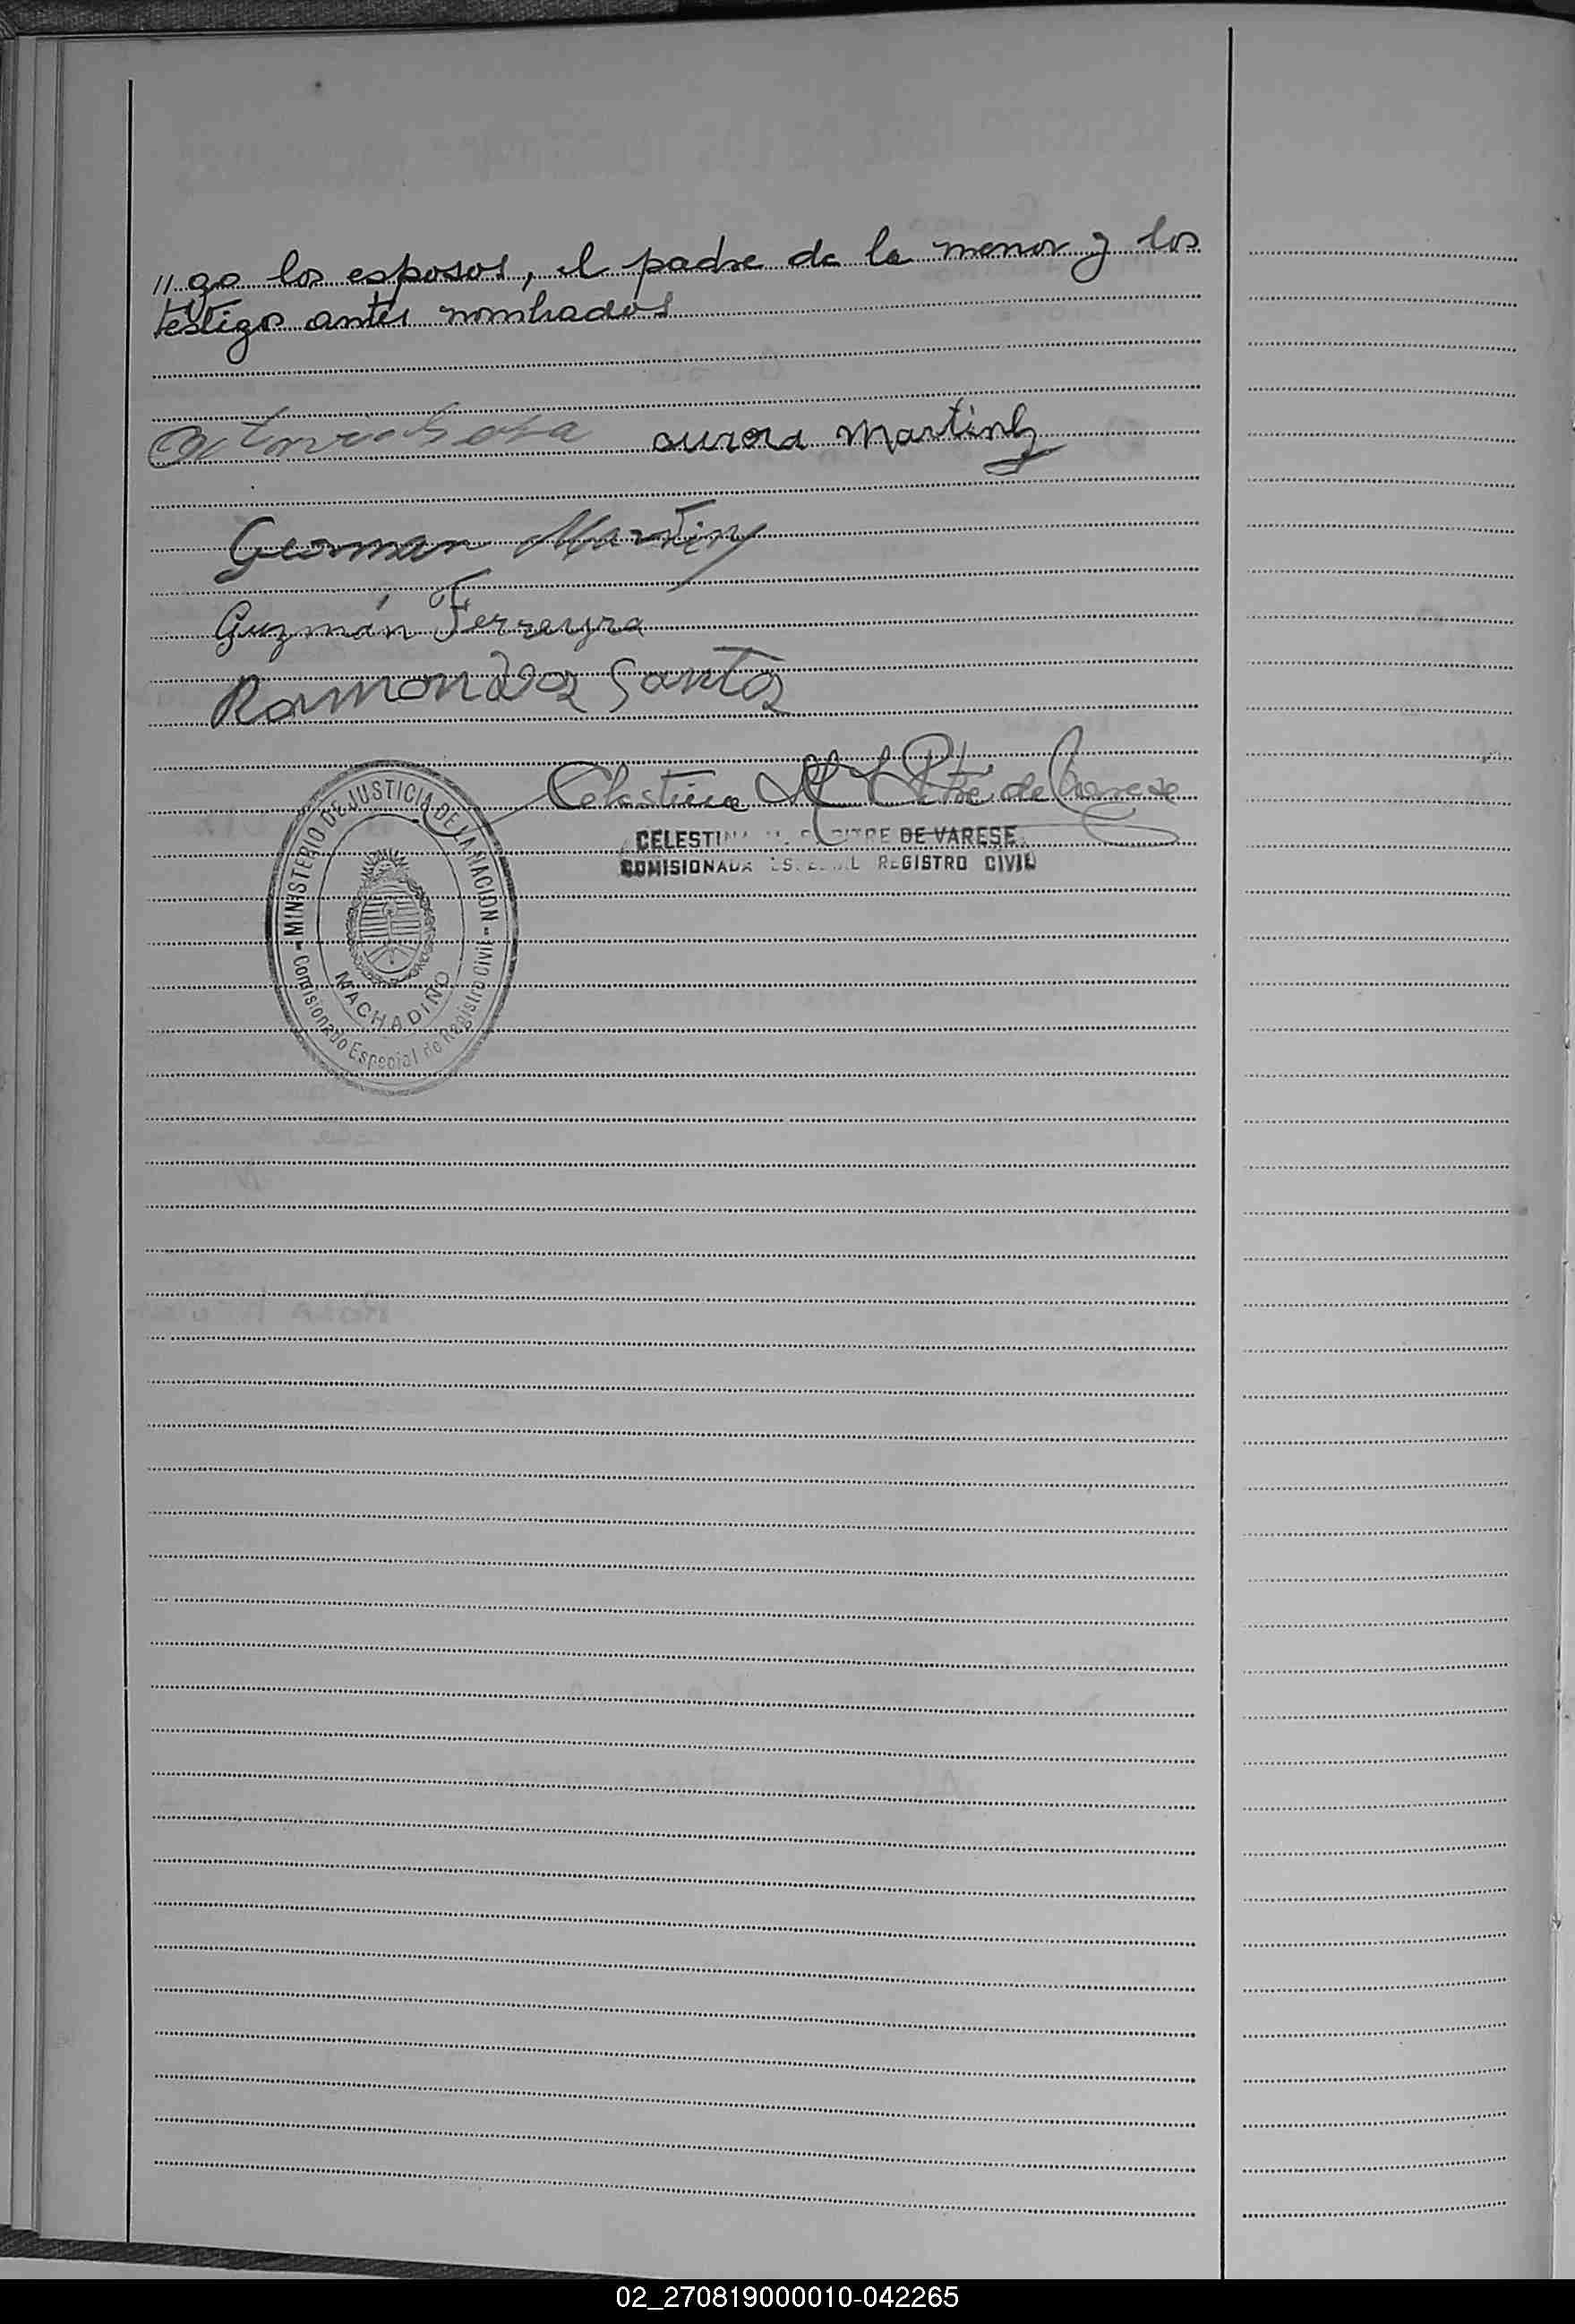 "go los esposos, el padre de la menor y los
testigos antes nombrados
Sosa aurora Martinez
German Martinez
Guzmán Ferreyra
Ramon Santa
Celestina M de Varese
CELESTINA DE VARESE
COMISIONADA ESPECIAL REGISTRO CIVIL
MINISTERIO DE JUSTICIA DE LA NACION
MACHADINO
Comisionado Especial de Registro Civil
02_270819000010-042265